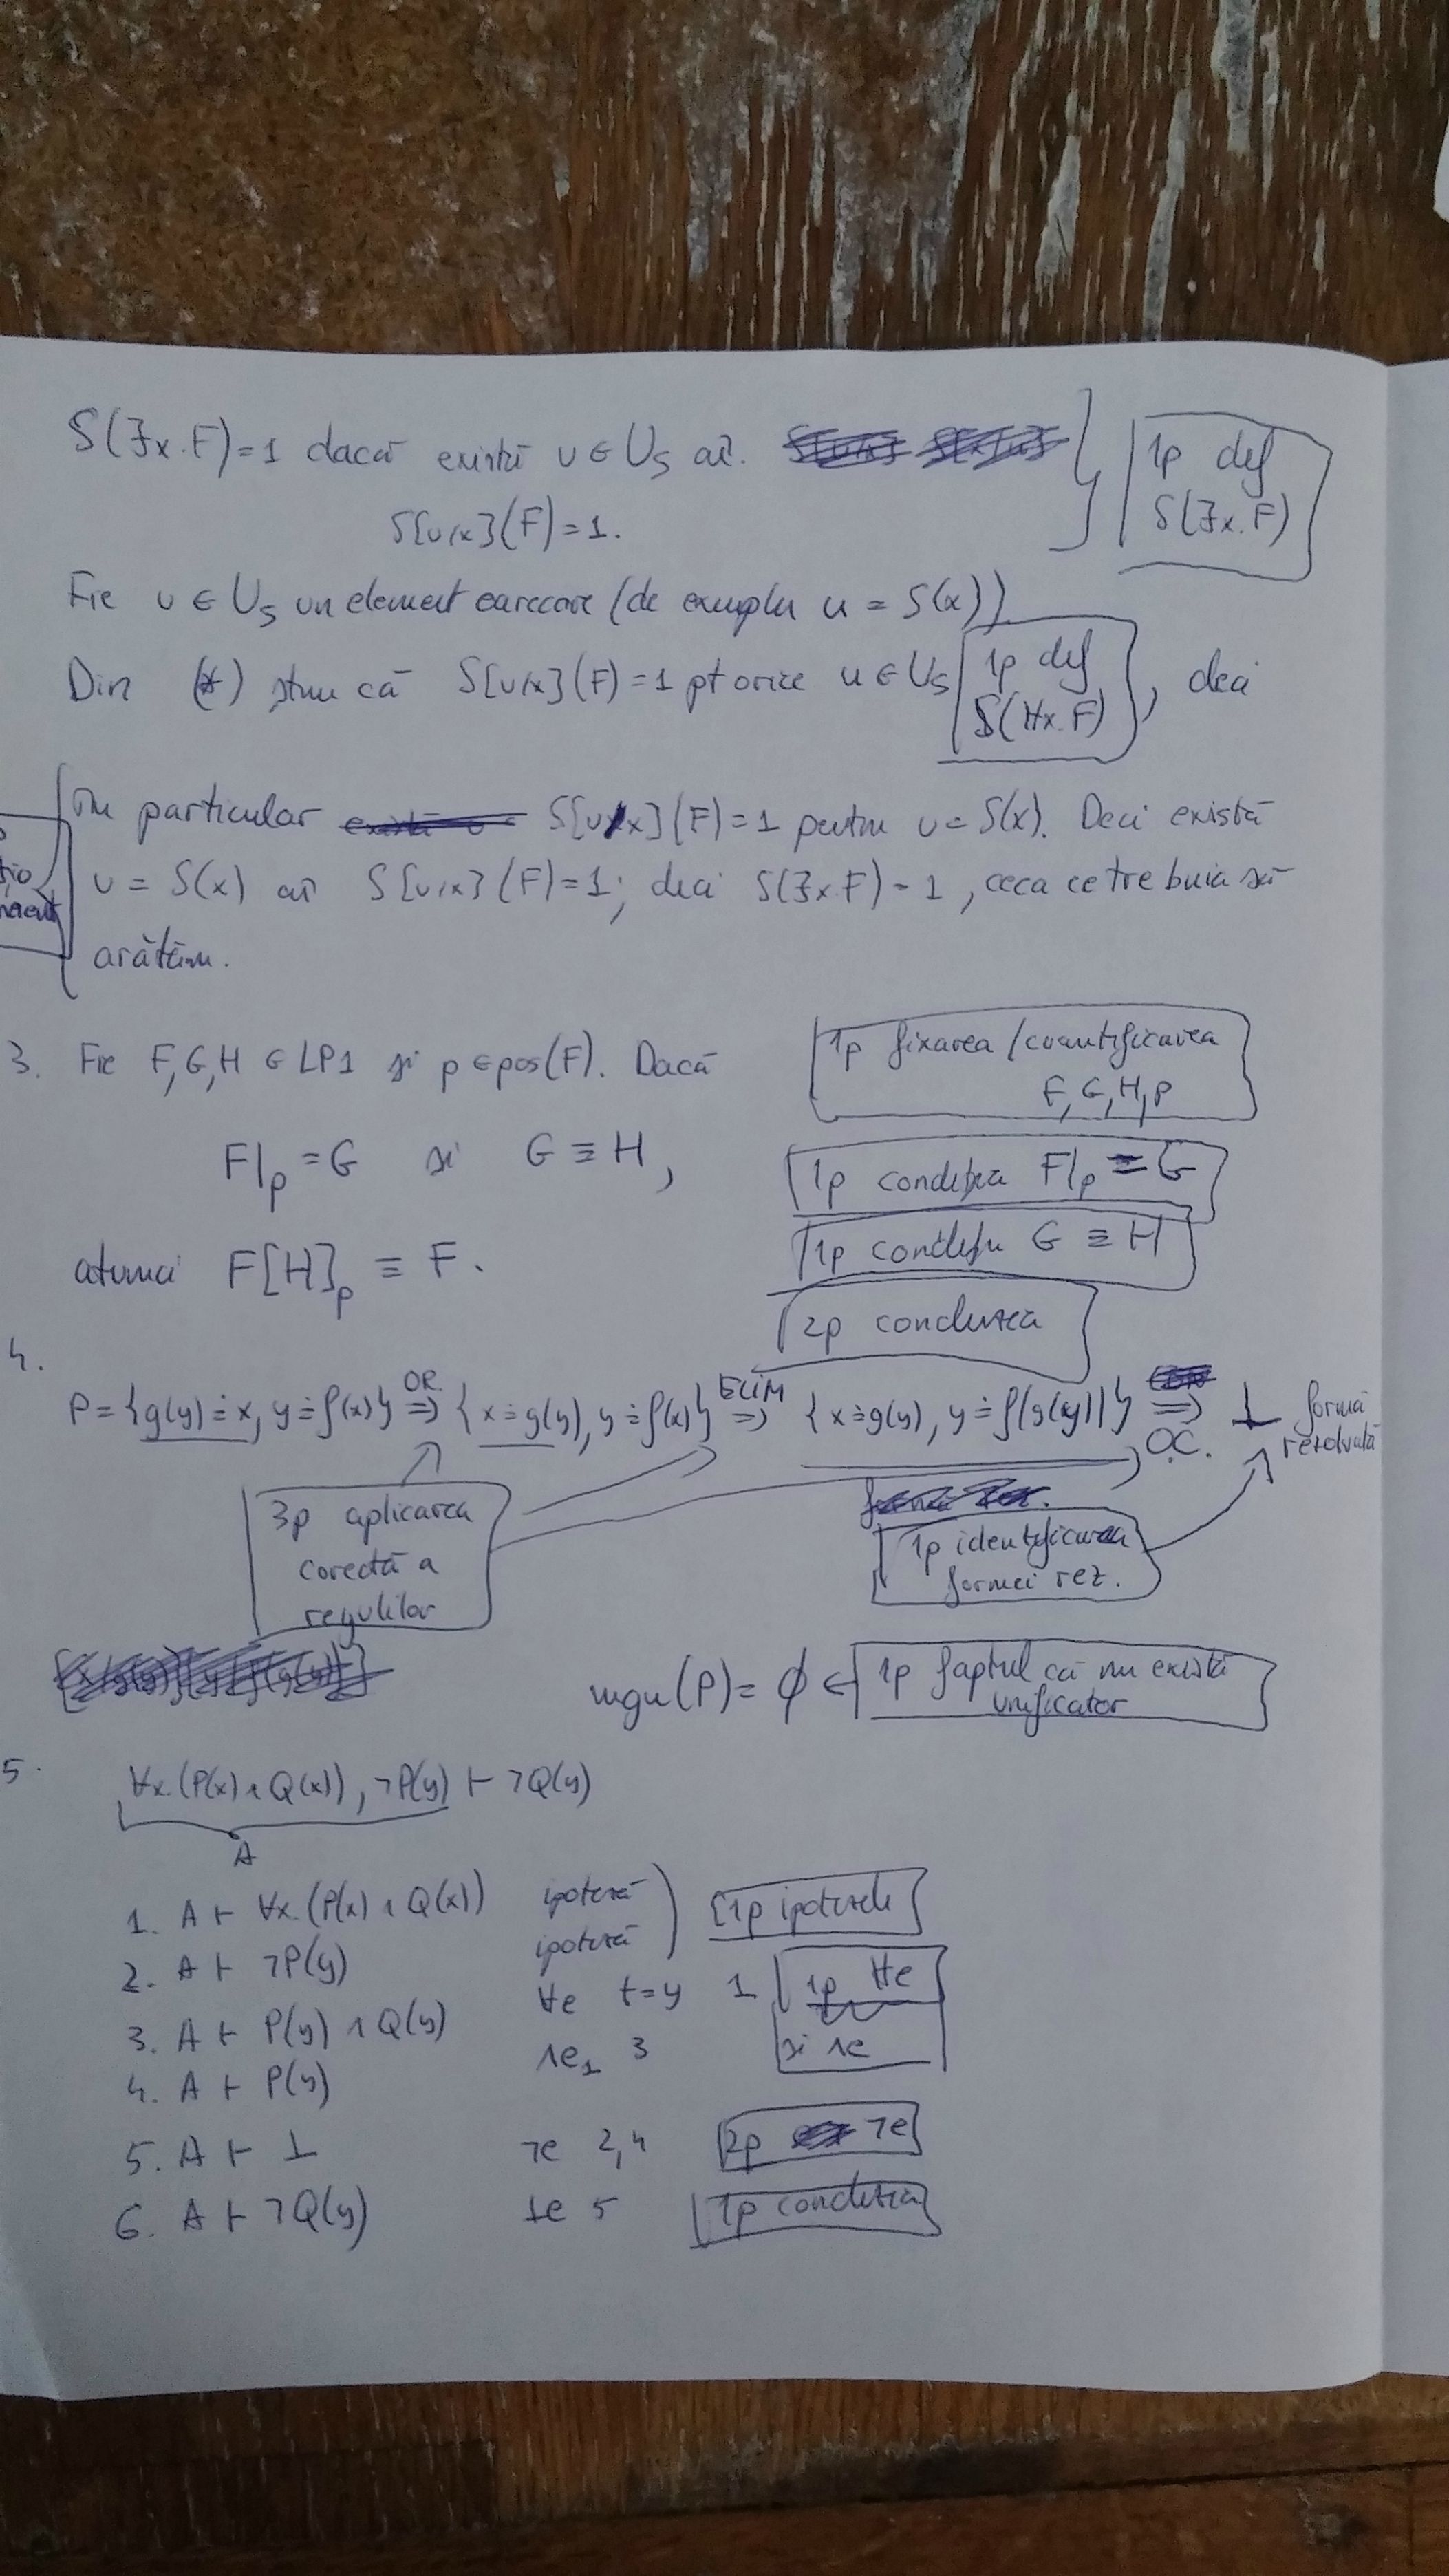 S(∃x.F)=1 dacă există u ∈ U_S aî.
S[u/x](F)=1.
1p def
S(∃x.F)
Fie u ∈ U_S un element oarecare (de exemplu u = S(x))
Din (*) știu că S[u/x](F)=1 pt orice u ∈ U_S
1p def
S(∀x.F)
, deci
În particular S[u/x](F)=1 pentru u=S(x). Deci există
u = S(x) aî S[u/x](F)=1; deci S(∃x.F)=1, ceea ce trebuia să
arătăm.
3. Fie F,G,H ∈ LP1 și p ∈ pos(F). Dacă
1p fixarea/cuantificarea
F,G,H,p
F|_p = G și G ≡ H,
1p condiția F|_p = G
1p condiția G ≡ H
atunci F[H]_p ≡ F.
2p concluzia
4.
P={g(y)≐x, y≐f(x)} ⇒ OR {x≐g(y), y≐f(x)} ⇒ ELIM {x≐g(y), y≐f(g(y))} ⇒ O.C. ⊥ formă
rezolvată
3p aplicarea
corectă a
regulilor
1p identificarea
formei rez.
mgu(P)= ∅ ← 1p faptul că nu există
unificator
5.
∀x.(P(x)∧Q(x)), ¬P(y) ⊢ ¬Q(y)
A
1. A ⊢ ∀x.(P(x)∧Q(x)) ipoteză
1p ipotezele
2. A ⊢ ¬P(y) ipoteză
3. A ⊢ P(y)∧Q(y) ∀e t=y 1
1p ∀e
și ∧e
4. A ⊢ P(y) ∧e₁ 3
5. A ⊢ ⊥ ¬e 2,4
2p ¬e
6. A ⊢ ¬Q(y) ⊥e 5
1p concluzia